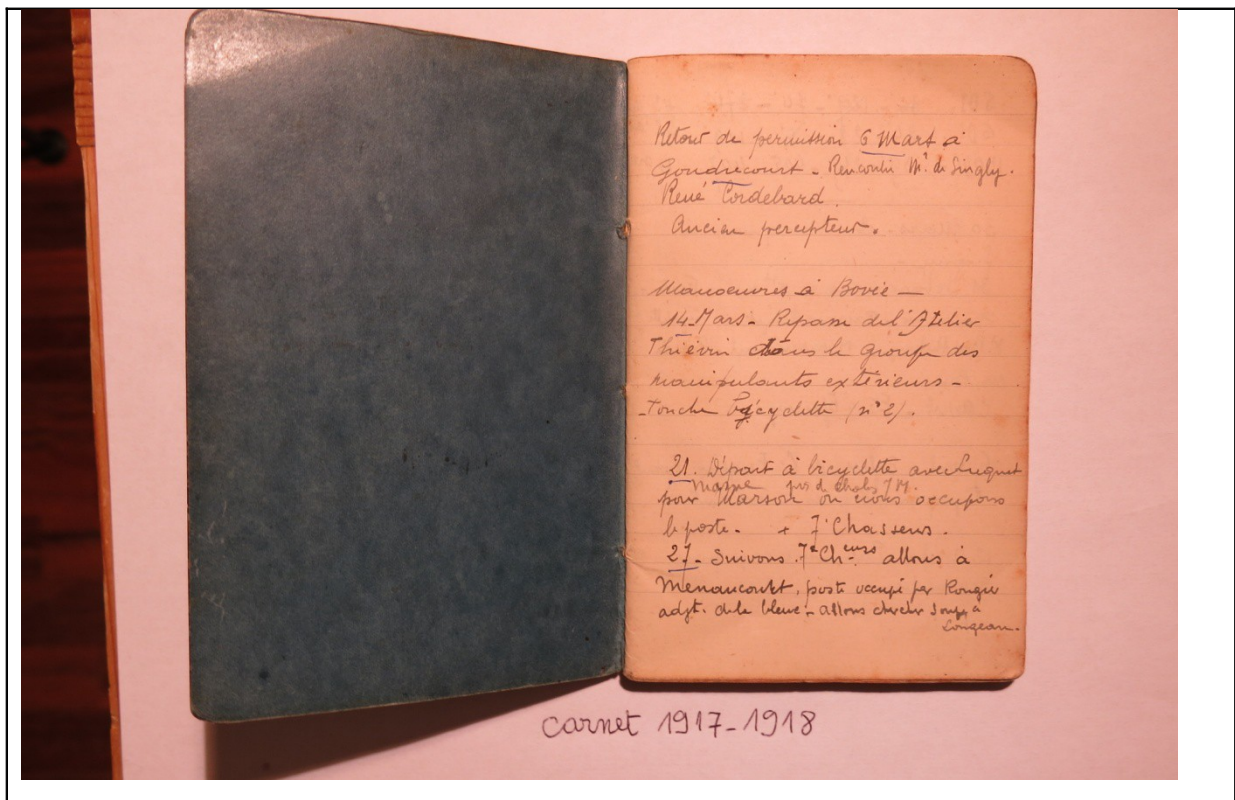 Retour de permission 6 Mars à
Gondrecourt - Rencontré Mr. de Singly.
René Tordebard.
Ancien percepteur.
Manoeuvres à Bovée -
14 Mars - Repasse de l'Atelier
Thiévin dans le groupe des
manipulants extérieurs -
Touche bicyclette (n° 2).
21. Départ à bicyclette avec Luquet
Marne près d. Chalons / M.
pour Marson où nous occupons
le poste. + 7e Chasseurs.
27 - Suivons 7e Cheurs allons à
Menaucourt, poste occupé par Rougier
adjt. de la bleue - allons chercher soupe à
Longeau.
carnet 1917-1918